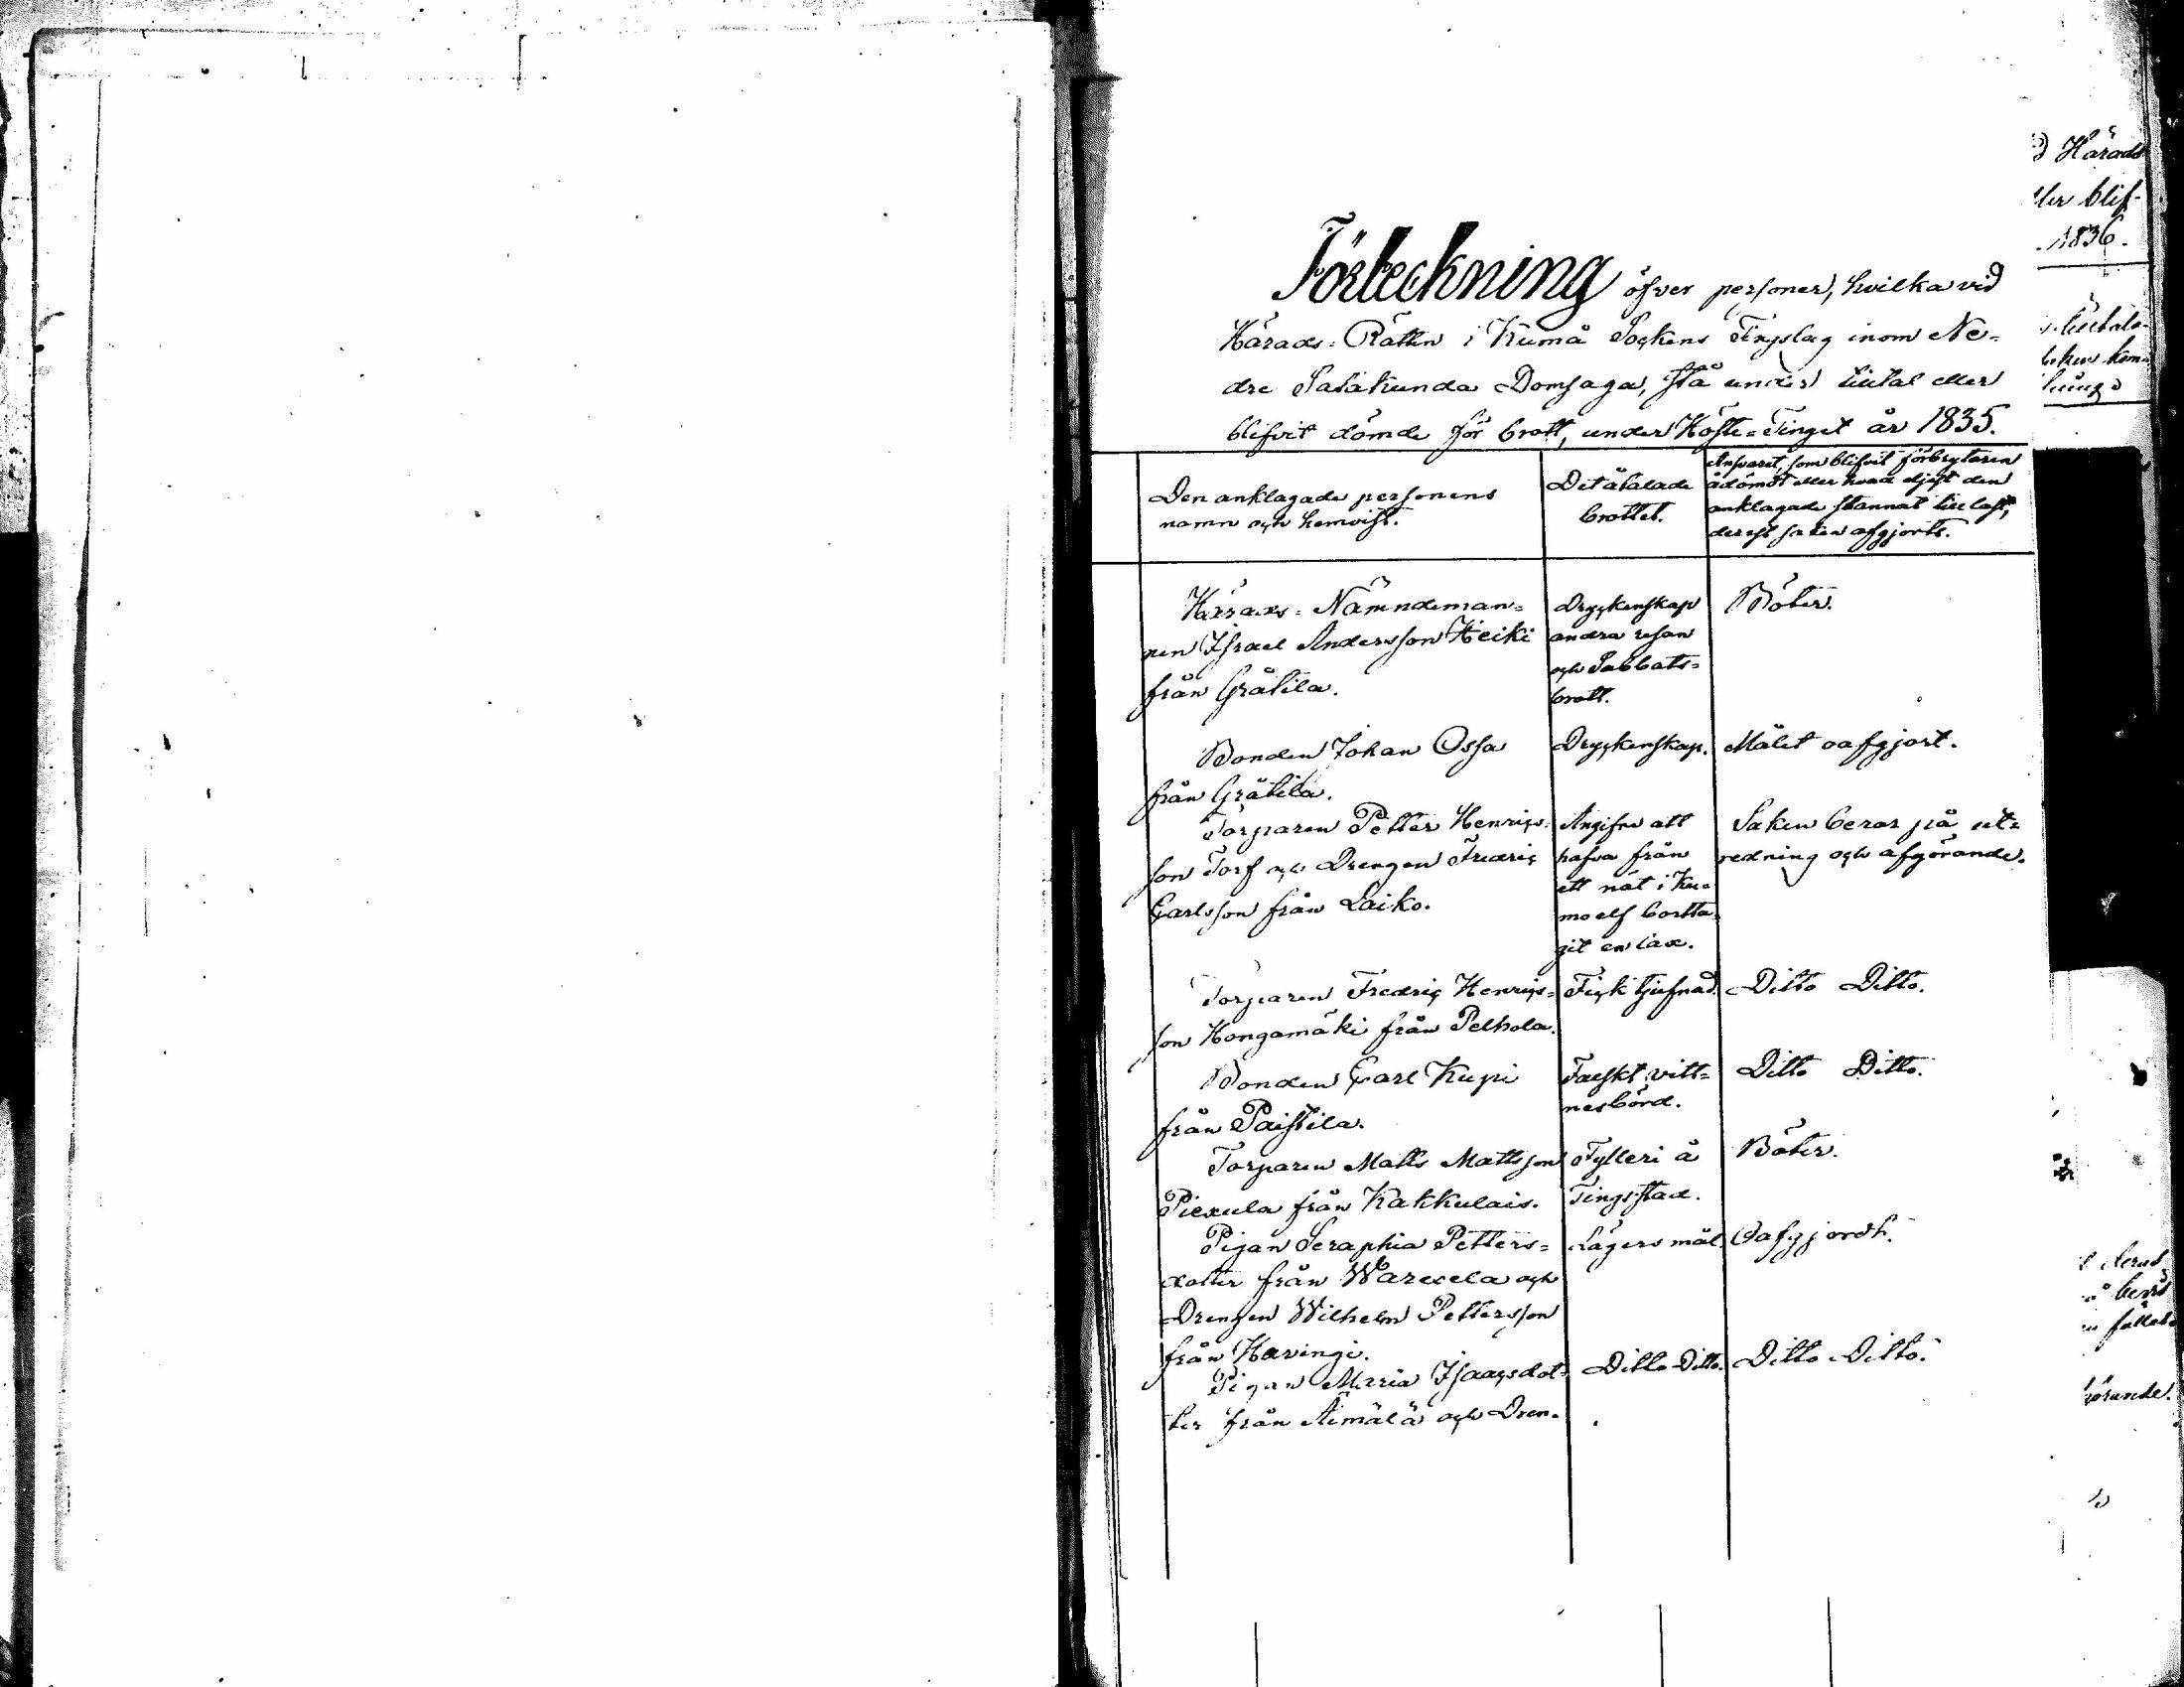 Förteckning öfver personer, hvilka vid
Härads-Rätten i Kumå Sockens Tingslag inom Ne-
dre Satakunda Domsaga, stå under tilltal eller
blifvit dömde för brott, under Höste-Tinget år 1835.
Den anklagade personens
namn och hemvist.
Det åtalade
brottet.
Ansvaret, som blifvit förbrytaren
ådömdt eller hvad eljest den
anklagade stannat till last,
derest saken afgjorts.
Härads-Nämndeman-
nen Israel Andersson Heiki
från Gråtila.
Dryckenskap
andra resan
och Sabbats-
brott.
Böter.
Bonden Johan Ossa
från Gråtila.
Dryckenskap.
Målet oafgjort.
Torparen Petter Henrics-
son Torf och Drengen Fredric
Carlsson från Laiko.
Angifne att
hafva från
ett nät i Ku-
mo elf bortta-
git en lax.
Saken beror på ut-
redning och afgörande.
Torparen Fredric Henrics-
son Hongamäki från Pelhola.
Fisk tjufnad.
Ditto Ditto.
Bonden Carl Kupi
från Paistila.
Falskt vitt-
nesbörd.
Ditto Ditto.
Torparen Matts Mattsson
Piexula från Kakkulais.
Fylleri å
Tingsstad.
Böter.
Pigan Seraphia Petters-
dotter från Warecela och
Drengen Wilhelm Pettersson
från Havingi.
Lägersmål.
Oafgjordt.
Pigan Maria Isaacsdot-
ter från Äimälä och Dren-
Ditto Ditto.
Ditto Ditto.
Härads
blif-
1836.